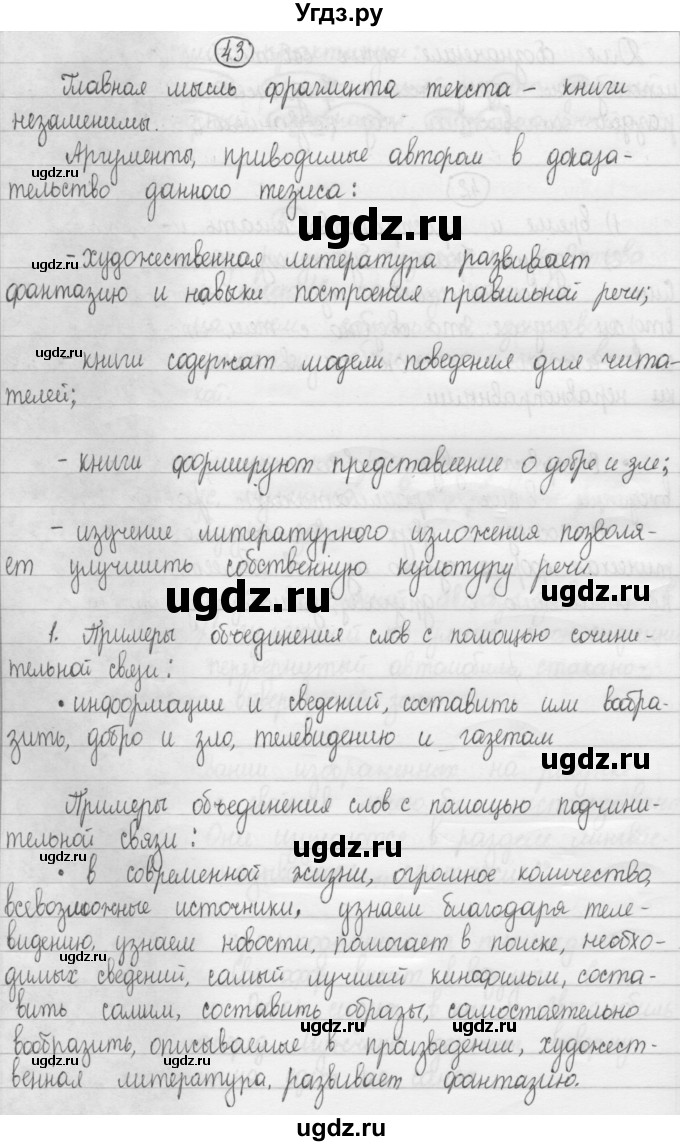 Угдз.ру
43
Главная мысль фрагмента текста – книги
незаменимы.
Аргументы, приводимые автором в доказа-
тельство данного тезиса:
ugdz.ru
ugdz.ru
- художественная литература развивает
фантазию и навыки построения правильной речи;
ugdz.ru
- книги содержат модели поведения для чита-
телей;
ugdz.ru
- книги формируют представление о добре и зле;
- изучение литературного изложения позволя-
ет улучшить собственную культуру речи
ugdz.ru
ugdz.ru
1. Примеры объединения слов с помощью сочини-
тельной связи:
• информации и сведений, составить или вообра-
зить, добро и зло, телевидению и газетам
ugdz.ru
Примеры объединения слов с помощью подчини-
тельной связи:
ugdz.ru
ugdz.ru
• в современной жизни, огромное количество,
всевозможные источники, узнаем благодаря теле-
видению, узнаем новости, помогает в поиске, необхо-
димых сведений, самый лучший кинофильм, соста-
вить самим, составить образы, самостоятельно
ugdz.ru
вообразить, описываемые в произведении, художест-
венная литература, развивает фантазию.
ugdz.ru
ugdz.ru